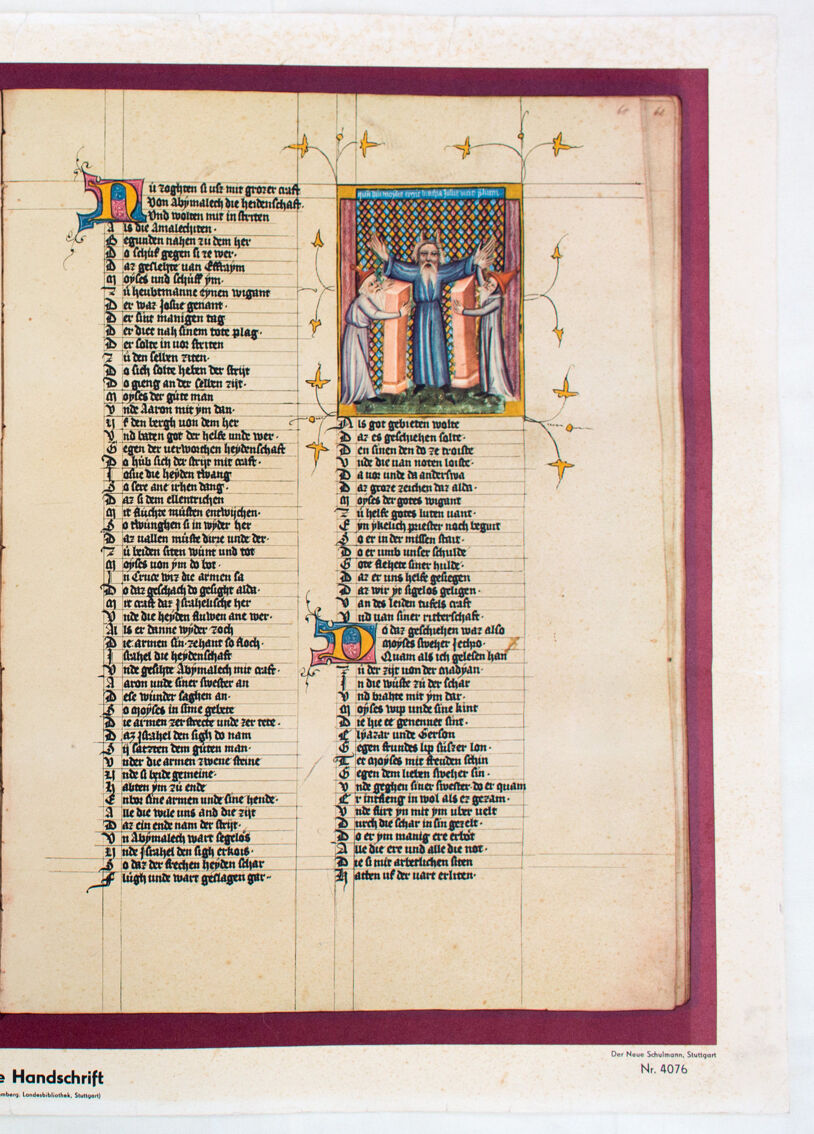 Nu zoghten si ufz mit grozer craft
Von Abymalech die heidenschaft.
Vnd wolten mit in striten
Als die Amalechiten.
Begunden nahen zu dem her
Do schuf gegen si ze wer.
Daz geslehte van Effraym
Moyses und schuff ym.
Zu heubtmanne eynen wigant
Der waz Josue genant.
Der sint manigen tag
Der diet nah sinem tote plag.
Der solte in vor striten
Zu den selben ziten.
Do sich solte heben der strijt
Do gieng an der selben zijt.
Moyses der gute man
Vnde Aaron mit ym dan.
Uf den bergh von dem her
Vnd baten got der helfe unde wer.
Gegen der verworchten heydenschaft
Do hub sich der strijt mit craft.
Josue die heyden twang
So sere ane irhen dang.
Daz si dem ellentrichen
Mit fluchte musten entwijchen.
So twunghen si in wyder her
Daz vallen muste dirre unde der.
Zu beiden siten wunt und tot
Moyses von ym do bot.
In Cruce wiz die armen sa
Do daz geschach do gesight alda.
Mit craft daz Israhelische her
Vnde die heyden fluwen ane wer.
Als er danne wyder zoch
Die armen sin zehant so floch.
Israhel die heydenschaft
Vnde gesihte Abymalech mit craft.
Aaron unde siner swester an
Dese wunder saghen an.
So moyses in sime gebete
Die armen zerstrecte unde zer tete.
Daz Israhel den sigh do nam
Sij satzten dem guten man.
Vnder die armen zwene steine
Unde si beide gemeine.
Habten ym zu ende
Enbor sine armen unde sine hende.
Alle die wile uns and die zijt
Daz ein ende nam der strijt.
Vn Abymalech wart segelos
Unde Israhel den sigh erkos.
So daz der frechen heyden schar
Flugh unde wart geslagen gar
61
62
Als got gebieten wolte
Daz es geschiehen solte.
Den sinen den do ze troiste
Vnde die uan noten loiste.
Da vor unde da anderswa
Daz groze zeichen daz alda.
Moyses der gotes wigant
Zu helfe gotes luten vant.
Eyn ykelich priester noch begint
So er in der missen stait.
Do er umb unser schulde
Gote flehete siner hulde.
Daz er uns helfe gesiegen
Daz wir yt sigelos geligen.
Van des leiden tufels craft
Vnd van siner ritterschaft.
Do daz geschiehen waz also
Moyses sweher Jethro.
Quam als ich gelesen han
Zu der zijt von der Madyan.
In die wuste zu der schar
Vnd brahte mit ym dar.
Moyses wip unde sine kint
Die hie ee genennet sint.
Elyazar unde Gerson
Gegen stundes lip suszer lon.
Tet Moyses mit freuden schin
Gegen dem lieben sweher sin.
Vnde geghen siner swester do er quam
Er intfieng in wol als er gezam.
Vnde furt yn mit ym uber velt
Durch die schar in sin gezelt.
Do er ym manig ere erbot
Alle die ere und alle die not.
Die si mit arbetlichen siten
Hatten uf der vart erliten.
e Handschrift
mberg. Landesbibliothek, Stuttgart)
Der Neue Schulmann, Stuttgart
Nr. 4076